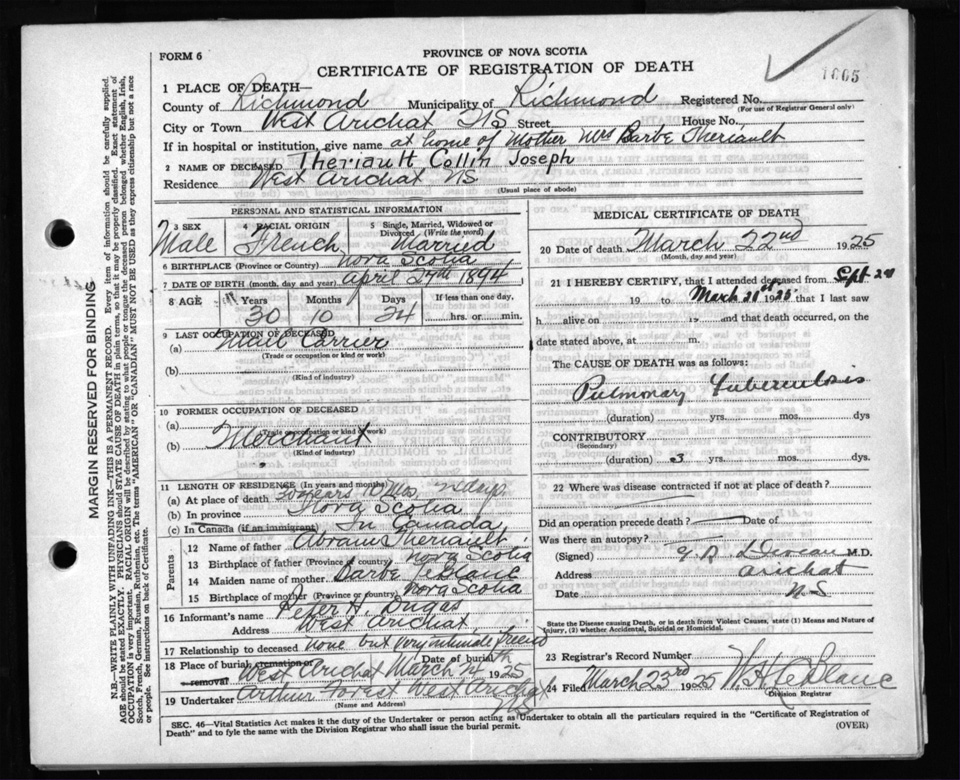 FORM 6
PROVINCE OF NOVA SCOTIA
CERTIFICATE OF REGISTRATION OF DEATH
1665
1 PLACE OF DEATH—
County of Richmond Municipality of Richmond Registered No.
(For use of Registrar General only)
City or Town West Arichat NS Street House No.
If in hospital or institution, give name at home of Mother Mrs Barbe Theriault
2 NAME OF DECEASED Theriault Collin Joseph
Residence West Arichat NS
(Usual place of abode)
PERSONAL AND STATISTICAL INFORMATION
3 SEX 4 RACIAL ORIGIN 5 Single, Married, Widowed or Divorced (Write the word)
Male French Married
6 BIRTHPLACE (Province or Country) Nova Scotia
7 DATE OF BIRTH (month, day and year) April 27th 1894
8 AGE Years Months Days If less than one day,
30 10 24 hrs. or min.
9 LAST OCCUPATION OF DECEASED
(a) Mail Carrier
(Trade or occupation or kind or work)
(b)
(Kind of industry)
10 FORMER OCCUPATION OF DECEASED
(a)
(Trade occupation or kind of work)
(b) Merchant
(Kind of industry)
11 LENGTH OF RESIDENCE (In years and months)
(a) At place of death 30 years 10 Mos. 24 days.
(b) In province Nova Scotia
(c) In Canada (if an immigrant) In Canada
Parents
12 Name of father Abram Theriault
13 Birthplace of father (Province or country) Nova Scotia
14 Maiden name of mother Barbe LeBlanc
15 Birthplace of mother (Province or country) Nova Scotia
16 Informant's name Peter H.
Address West Arichat
17 Relationship to deceased none but very intimate friend
18 Place of burial, cremation or removal Date of burial
West Arichat March 1925
19 Undertaker Arthur Forest West Arichat NS
(Name and Address)
MEDICAL CERTIFICATE OF DEATH
20 Date of death March 22nd 1925
(Month, day and year)
21 I HEREBY CERTIFY, that I attended deceased from Sept 24
19 to March 21st 1925 that I last saw
h alive on 19 and that death occurred, on
date stated above, at m.
The CAUSE OF DEATH was as follows:
Pulmonary Tuberculosis
(duration) yrs. mos. dys
CONTRIBUTORY
(Secondary)
(duration) 3 yrs. mos. dys
22 Where was disease contracted if not at place of death?
Did an operation precede death? Date of
Was there an autopsy?
(Signed) M.D.
Address Arichat
Date N.S
State the Disease causing Death, or in death from Violent Causes, state (1) Means and Nature of Injury, (2) whether Accidental, Suicidal or Homicidal.
23 Registrar's Record Number
24 Filed March 23rd 1925 W. H. LeBlanc
Division Registrar
SEC. 46—Vital Statistics Act makes it the duty of the Undertaker or person acting as Undertaker to obtain all the particulars required in the "Certificate of Registration of
Death" and to fyle the same with the Division Registrar who shall issue the burial permit.
(OVER)
MARGIN RESERVED FOR BINDING
N.B.—WRITE PLAINLY WITH UNFADING INK—THIS IS A PERMANENT RECORD. Every item of information should be carefully supplied.
AGE should be stated EXACTLY. PHYSICIANS should STATE CAUSE OF DEATH in plain terms, so that it may be properly classified. Exact statement of
OCCUPATION is very important. RACIAL ORIGIN will be described by stating to what people or tongue the deceased person belonged whether English, Irish,
Scotch, French, German, Russian, Ruthenian, etc. The terms "AMERICAN" or "CANADIAN" MUST NOT BE USED as they express citizenship but not a race
or people. See instructions on back of Certificate.